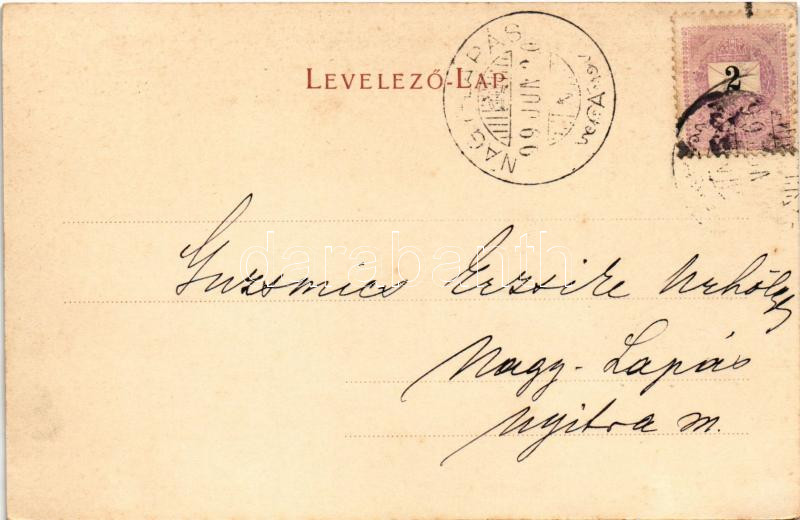 LEVELEZŐ-LAP
NAGY LAPÁS
99 JUN
2
darabanth
Guzsmics Erzsike Urhölgy
Nagy-Lapás
Nyitra m.